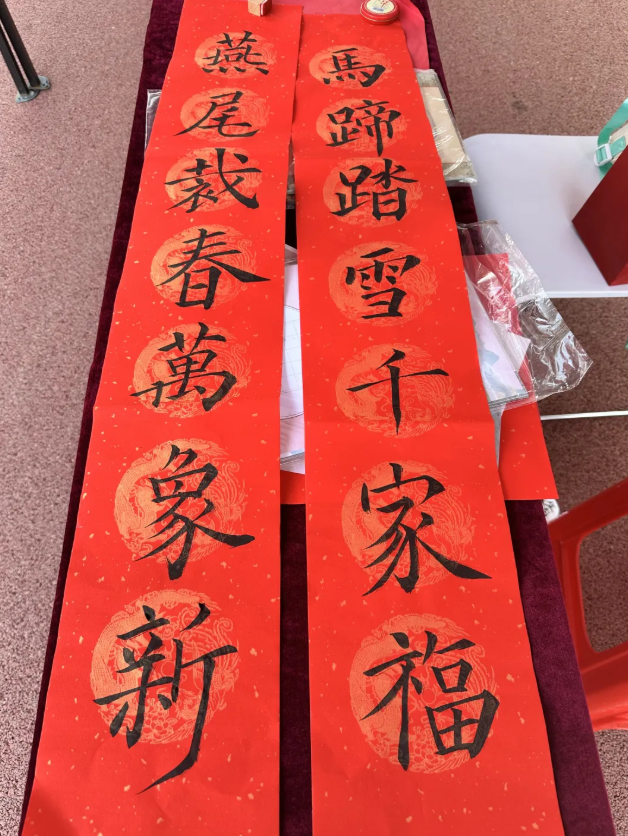 馬蹄踏雪千家福
燕尾裁春萬象新